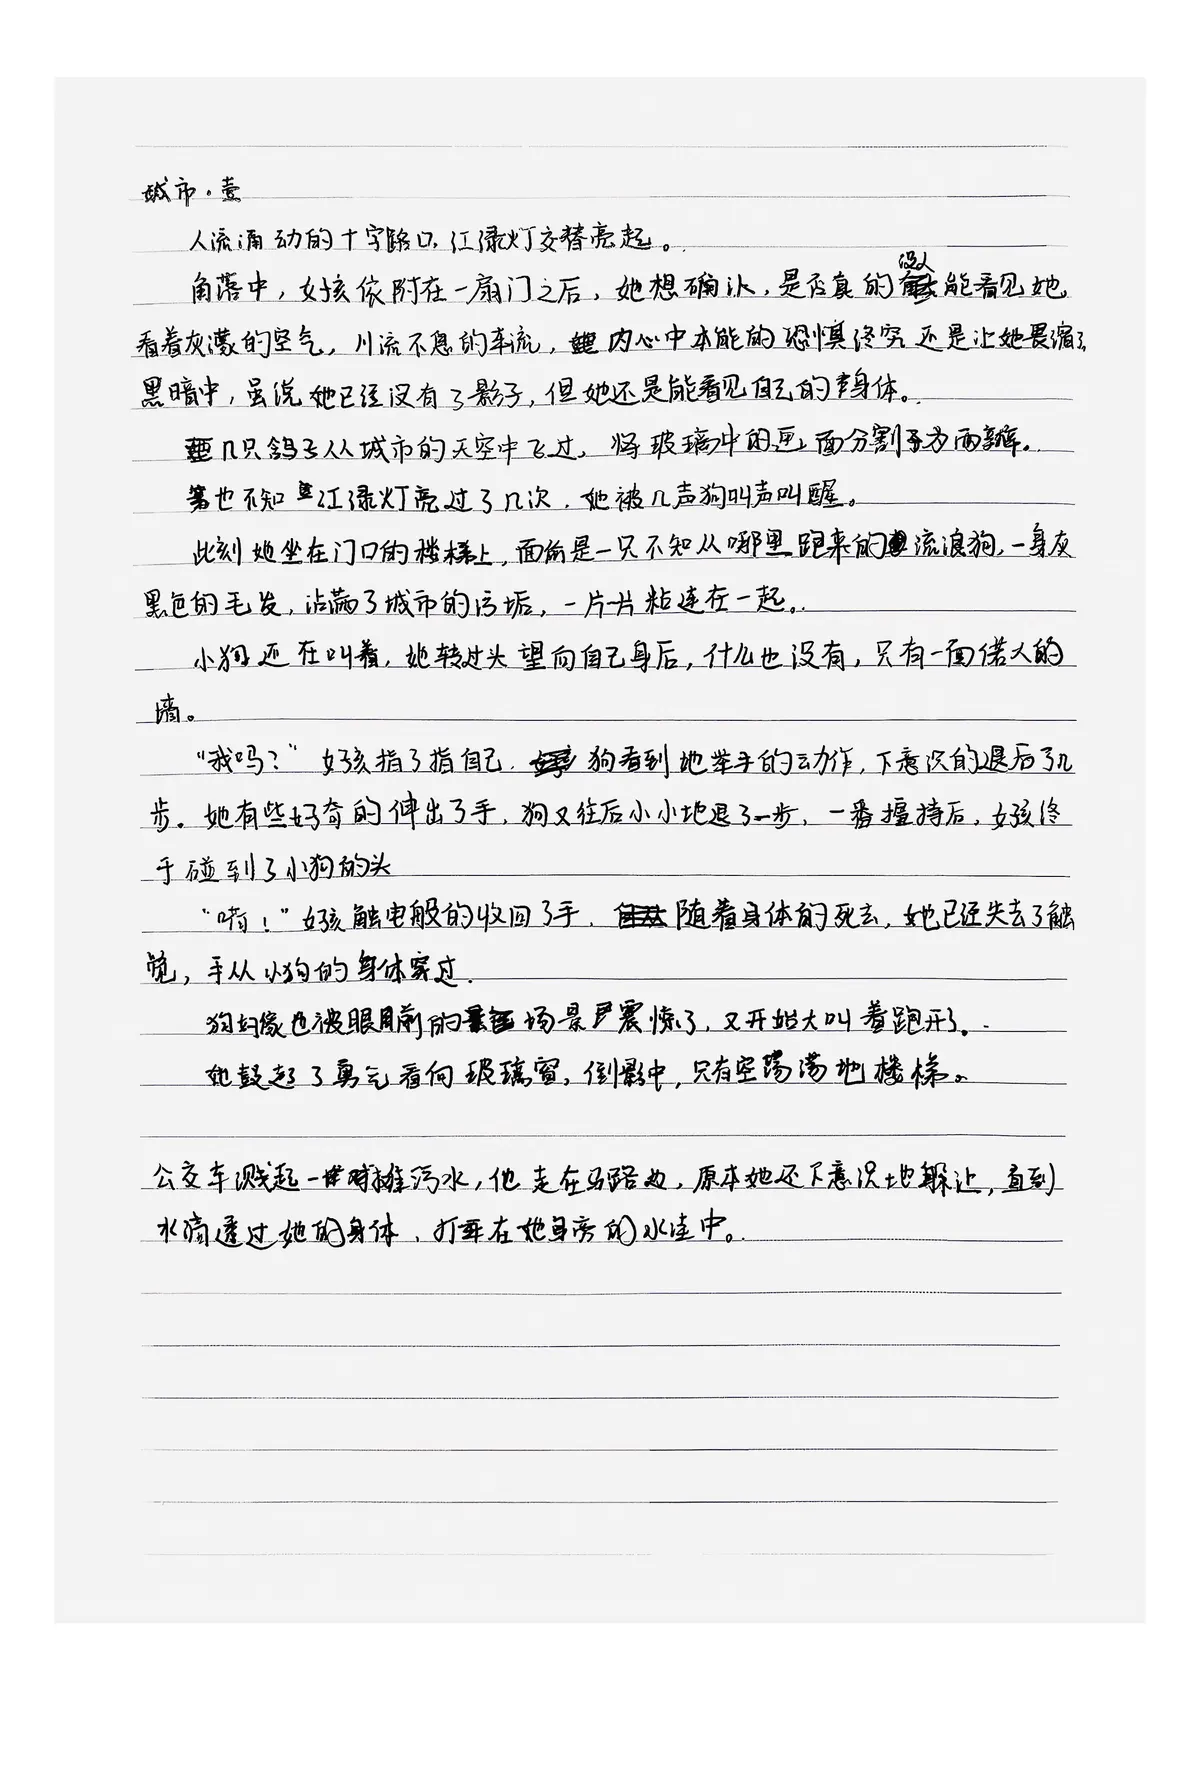 城市·壹
人流涌动的十字路口,红绿灯交替亮起。
角落中,女孩依附在一扇门之后,她想确认,是否真的没人能看见她
看着灰濛的空气,川流不息的车流,内心中本能的恐惧终究还是让她畏缩了
黑暗中,虽说她已经没有了影子,但她还是能看见自己的身体。
几只鸽子从城市的天空中飞过,将玻璃中的画面分割为两瓣。
也不知红绿灯亮过了几次,她被几声狗叫声叫醒。
此刻她坐在门口的楼梯上,面前是一只不知从哪里跑来的流浪狗,一身灰
黑色的毛发,沾满了城市的污垢,一片一片粘连在一起。
小狗还在叫着,她转过头望向自己身后,什么也没有,只有一面偌大的
墙。
“我吗?”女孩指了指自己.狗看到她举手的动作,下意识的退后了几
步。她有些好奇的伸出了手,狗又往后小小地退了一步,一番握持后,女孩终
于碰到了小狗的头
“啃!”女孩触电般的收回了手.随着身体的死去,她已经失去了触
觉,手从小狗的身体穿过.
狗好像也被眼前的场景震惊了,又开始大叫着跑开了。
她鼓起了勇气看向玻璃窗,倒影中,只有空荡荡地楼梯。
公交车溅起一摊污水,他走在马路边,原本她还下意识地躲让,直到
水滴透过她的身体,打在她身旁的水洼中。